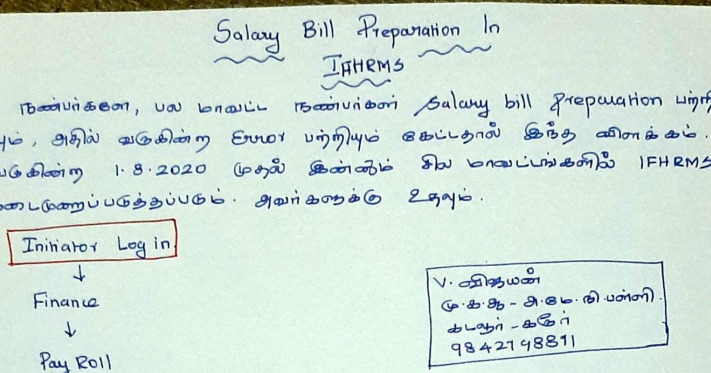 Salary Bill Preparation In
IFHRMS
நண்பர்களே, பல மாவட்ட நண்பர்கள் Salary bill Preparation பற்றி
யும், அதில் வருகின்ற Error பற்றியும் கேட்டதால் இந்த விளக்கம்.
வருகின்ற 1.8.2020 முதல் இன்னும் சில மாவட்டங்களில் IFHRMS
டைமுறைப்படுத்தப்படும். அவர்களுக்கு உதவும்.
Initiator Log in
↓
Finance
↓
Pay Roll
V. விஜயன்
மு.க.ஆ - அ.மே.நி.பள்ளி.
கடலூர்